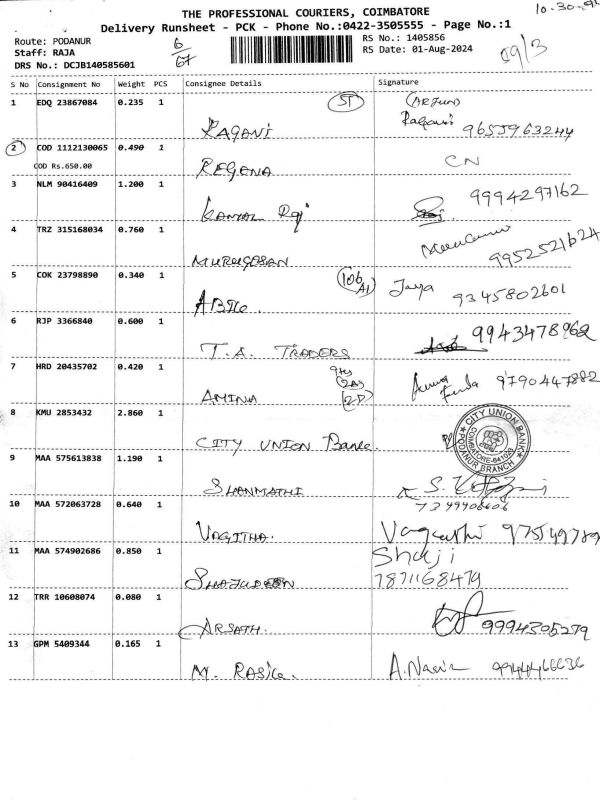 THE PROFESSIONAL COURIERS, COIMBATORE
10.30
Delivery Runsheet - PCK - Phone No.:0422-3505555 - Page No.:1
Route: PODANUR
6/67
RS No.: 1405856
Staff: RAJA
RS Date: 01-Aug-2024
DRS No.: DCJB140585601
S No Consignment No Weight PCS Consignee Details Signature
1 EDQ 23867084 0.235 1
RAGANI
9655963244
2 COD 1112130065 0.490 1
COD Rs.650.00
REGENA
CN
3 NLM 90416409 1.200 1
Kamal Raj
9994297162
4 TRZ 315168034 0.760 1
MURUGESAN
9952521624
5 COK 23798890 0.340 1
106 A1
Jaya 9345802601
6 RJP 3366840 0.600 1
T.A. TRADERS
9943478962
7 HRD 20435702 0.420 1
AMINA
9790447882
8 KMU 2853432 2.860 1
CITY UNION Bank.
CITY UNION BANK
COIMBATORE-641023
PODANUR BRANCH
9 MAA 575613838 1.190 1
SHANMATHI
7349406606
10 MAA 572063728 0.640 1
VAGITHA.
11 MAA 574902686 0.850 1
SHAJUDEEN
Shaji
7871168479
12 TRR 10608074 0.080 1
ARSATH.
9994305279
13 GPM 5409344 0.165 1
M. RASIC.
A. Nasir 9944466636